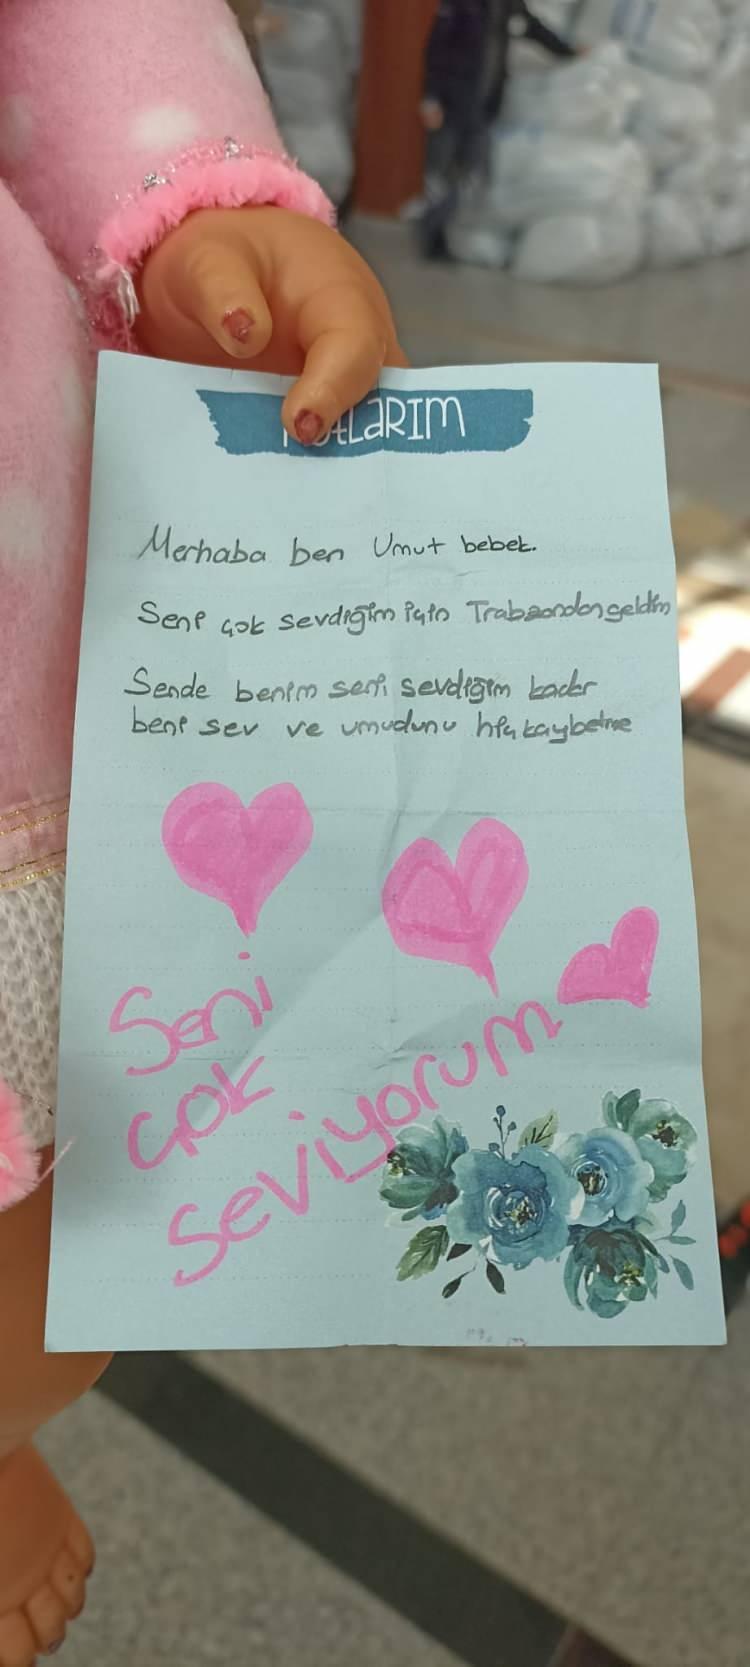 NOtLaRIM
Merhaba ben Umut bebek.
Seni çok sevdiğim için Trabzondan geldim
Sende benim seni sevdiğim kadar
beni sev ve umudunu hiç kaybetme
Seni
çok
seviyorum